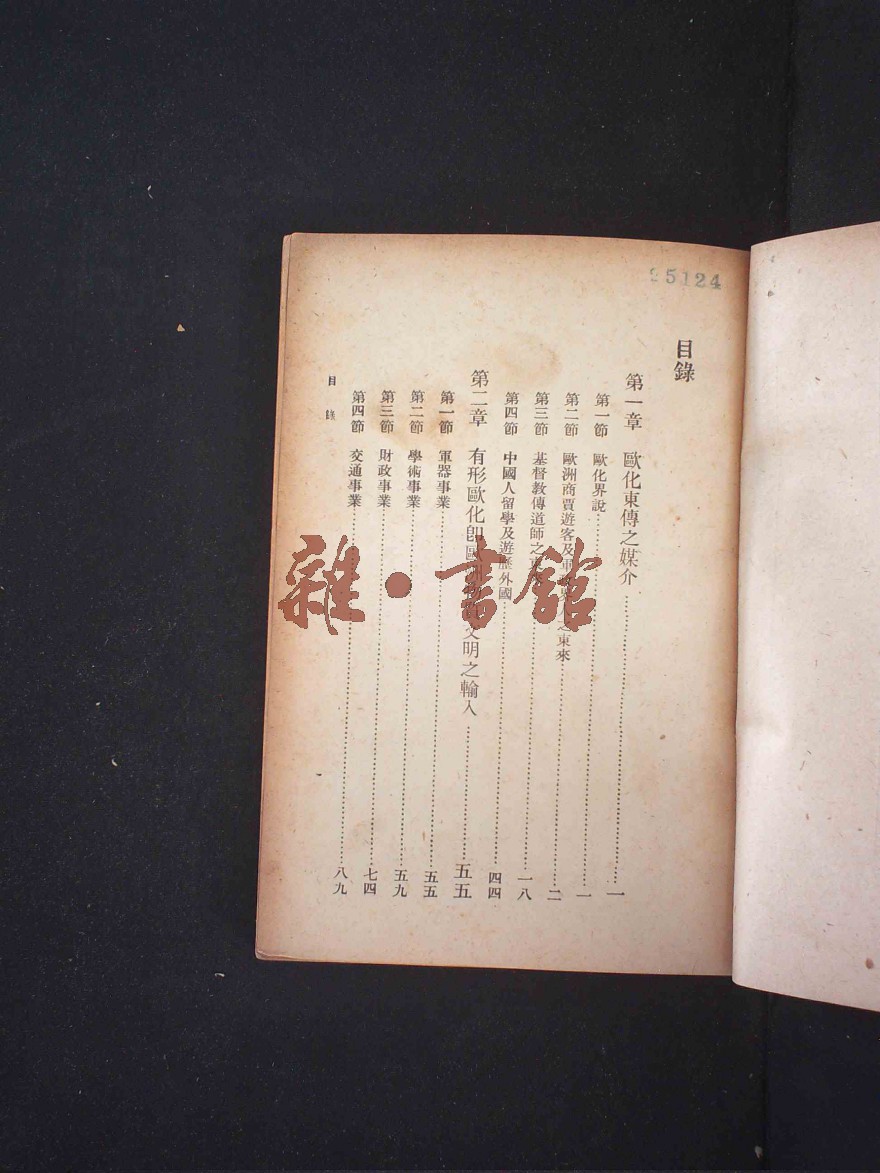 25124
目錄
第一章 歐化東傳之媒介……一
第一節 歐化界說……一
第二節 歐洲商賈遊客及軍政界人之東來……二
第三節 基督教傳道師之東來……一八
第四節 中國人留學及遊歷外國……四四
第二章 有形歐化即歐洲物質文明之輸入……五五
第一節 軍器事業……五五
第二節 學術事業……五九
第三節 財政事業……七四
第四節 交通事業……八九
目錄
雜·書館